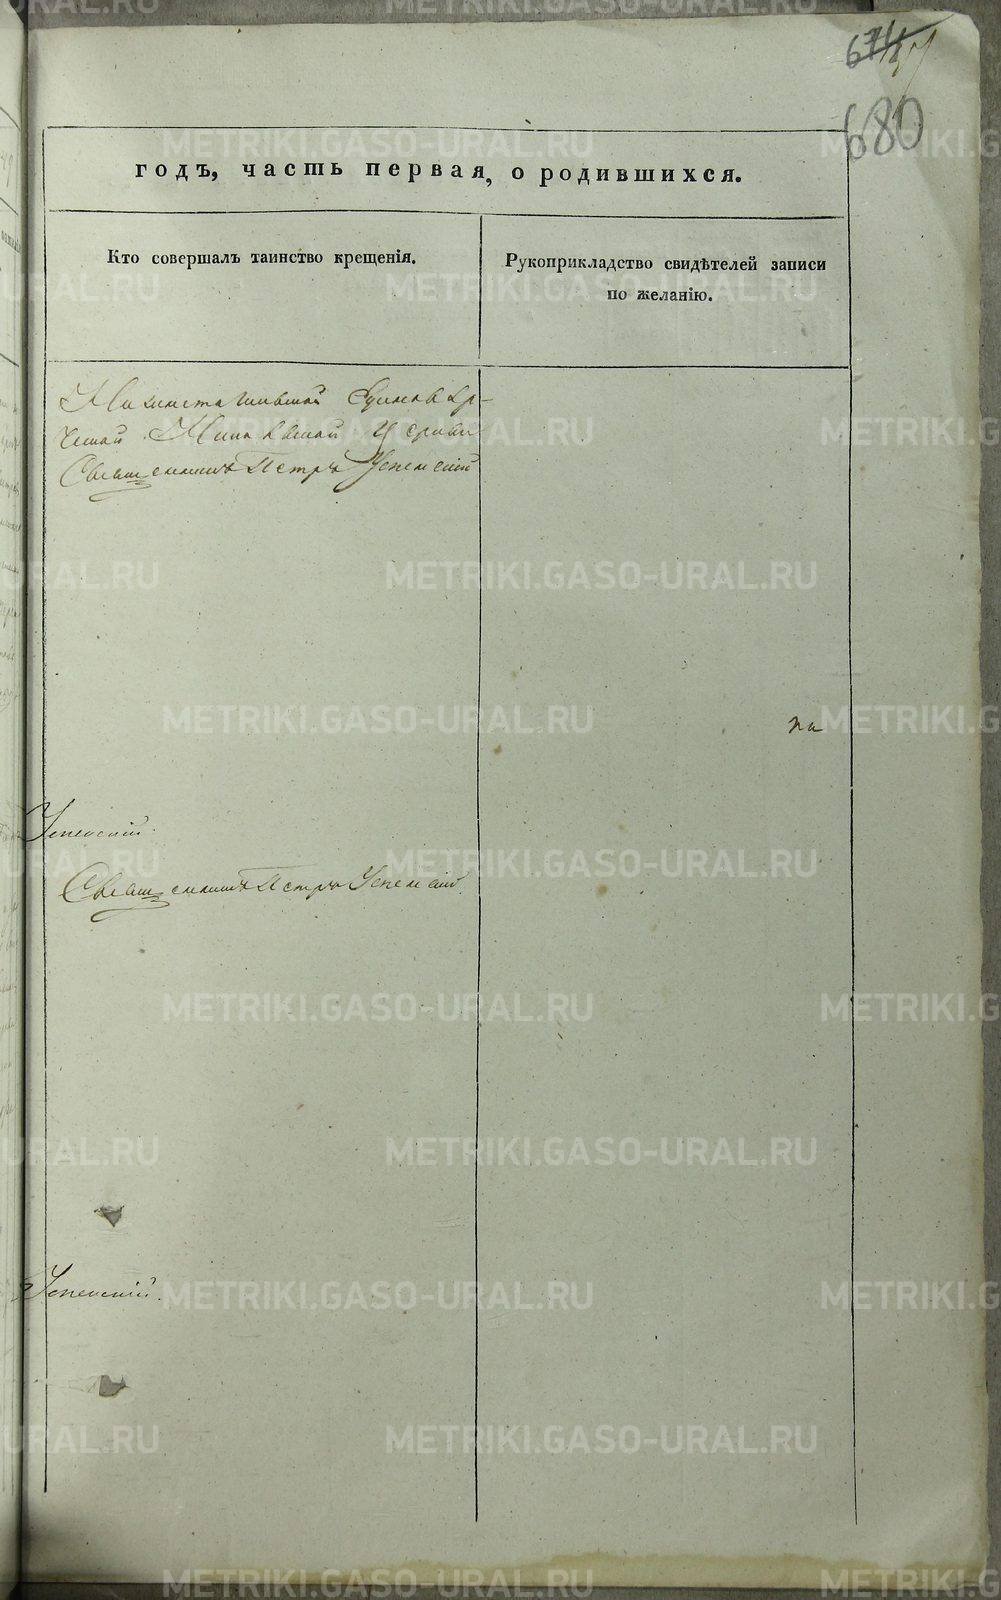 674
680
годъ, часть первая, о родившихся.
Кто совершалъ таинство крещенія.
Рукоприкладство свидѣтелей записи
по желанію.
Нижнетагильской Единовѣр-
ческой Никольской Церкви
Священникъ Петръ Успенскій
на
Успенскій.
Священникъ Петръ Успенскій.
Успенскій.
METRIKI.GASO-URAL.RU